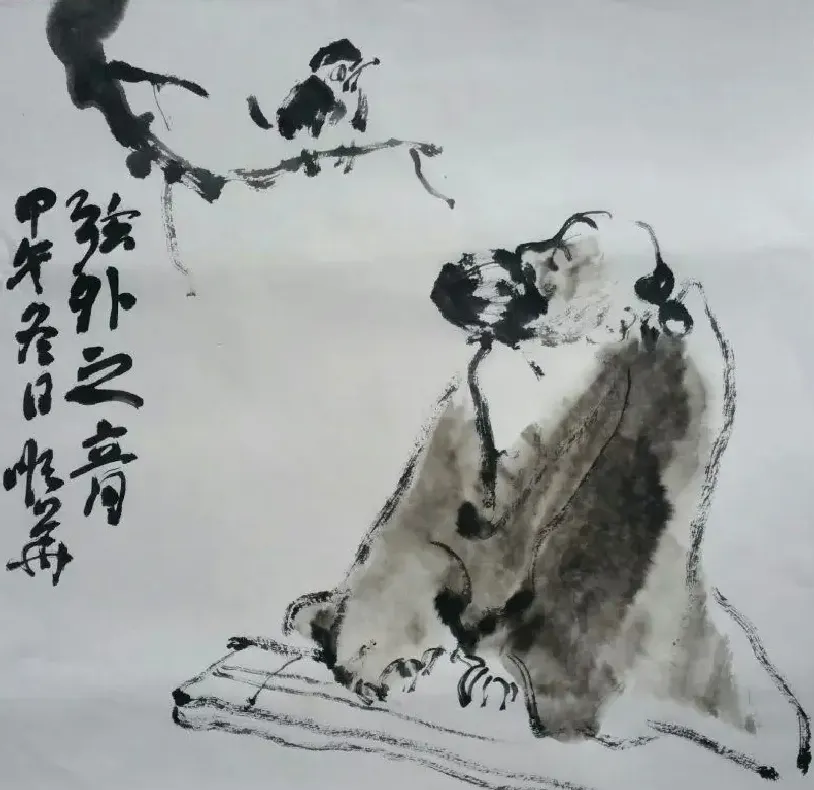 弦外之音
甲午冬日華